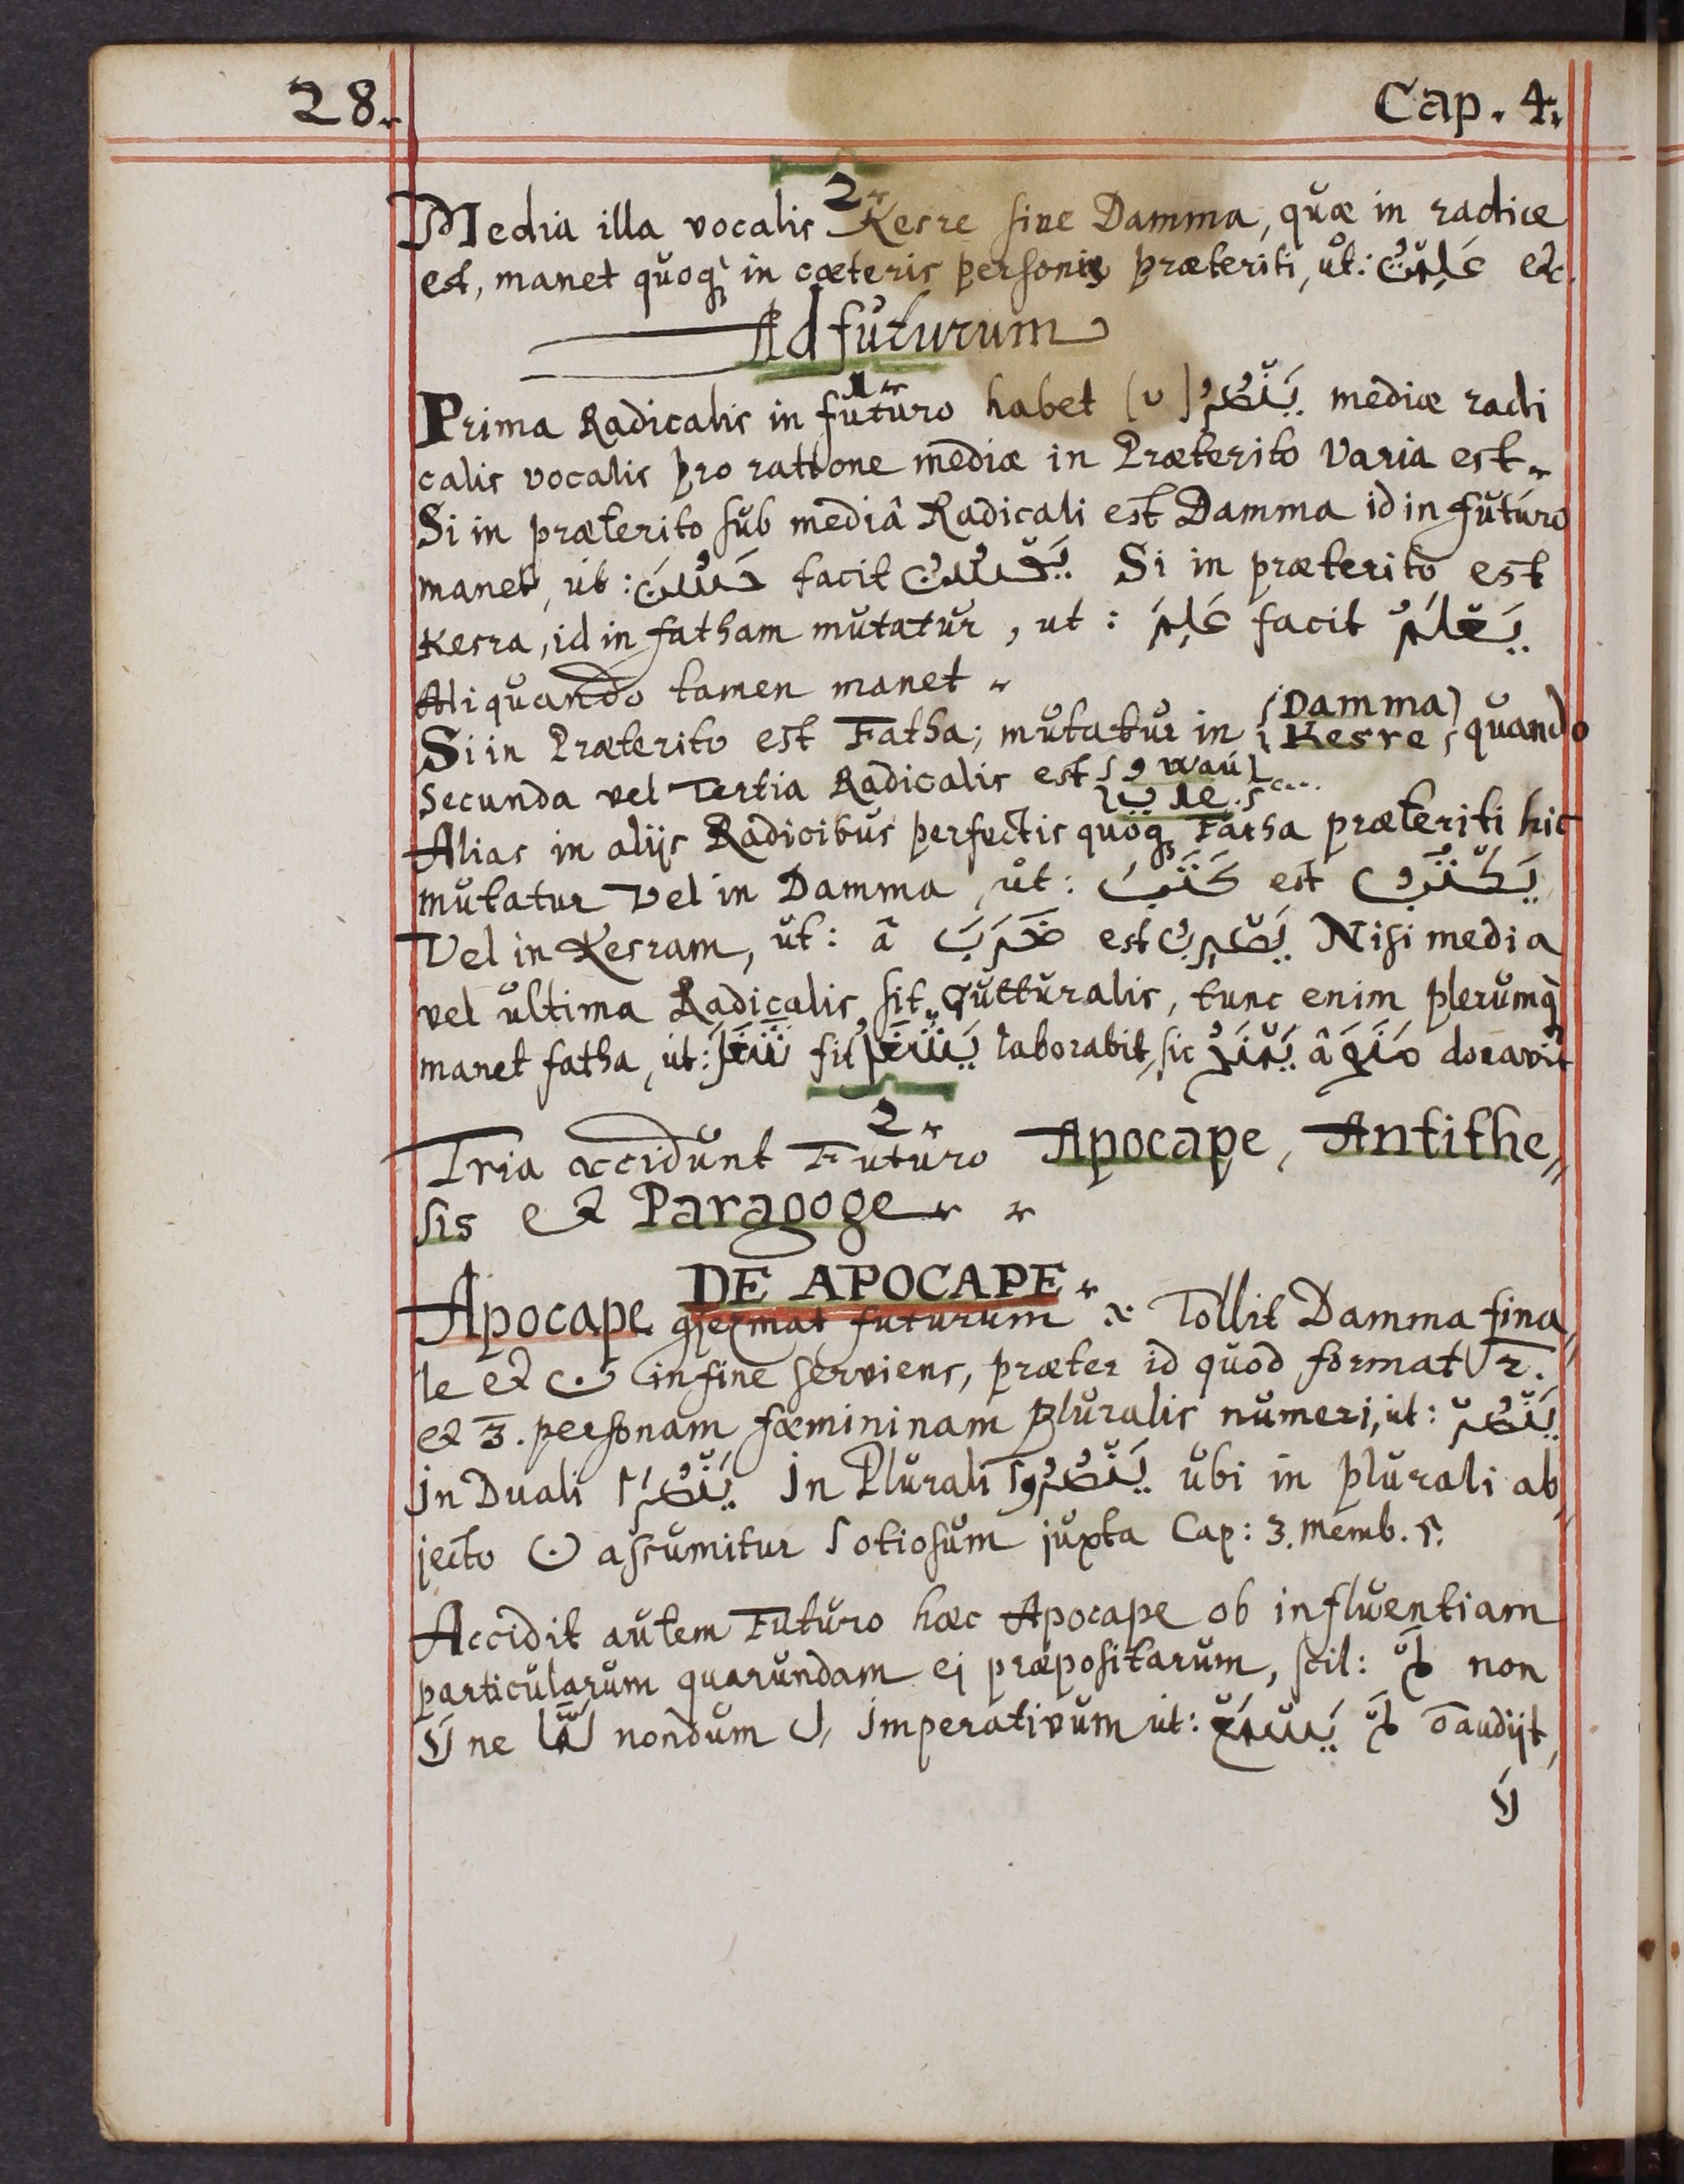 28.
Cap. 4.
2.
Media illa vocalis Kesre sive Damma, quæ in radice
est, manet quoq̀ in cæteris personis præteriti, ut: عَلِمْتَ etc.
Ad futurum
1.
Prima Radicalis in futuro habet (ْ) يَنْصُرُ mediæ radi
calis vocalis pro ratione mediæ in Præterito varia est.
Si in præterito sub mediâ Radicali est Damma id in futuro
manet, ut: حَسُنَ facit يَحْسُنُ Si in præterito est
Kesra, id in fatham mutatur, ut: عَلِمَ facit يَعْلَمُ
Aliquando tamen manet.
Si in Præterito est Fatha; mutatur in {Damma / Kesre} quando
Secunda vel Tertia Radicalis est {و waú / ي Je.}
Alias in aliis Radicibus perfectis quoq Fatha præteriti hic
mutatur vel in Damma, ut: كَتَبَ est يَكْتُبُ
Vel in Kesram, ut: â ضَرَبَ est يَضْرِبُ Nisi media
vel ultima Radicalis sit gutturalis, tunc enim plerumq̀
manet fatha, ut: شَغَلَ fit يَشْغَلُ laborabit, sic يَمْنَحُ â مَنَحَ donavit
2.
Tria accidunt Futuro Apocape, Antithe„
sis et Paragoge.
DE APOCAPE.
Apocape gjezmat futurum .. Tollit Damma fina„
le et ن in fine serviens, præter id quod format 2.
et 3. personam fæmininam pluralis numeri, ut: يَنْصُرْ
In Duali يَنْصُرَا In Plurali يَنْصُرُوا ubi in plurali ab„
jecto ن assumitur ا otiosum juxta Cap: 3. memb. 5.
Accidit autem Futuro hæc Apocape ob influentiam
particularum quarundam ei præpositarum, scil: لَمْ non
لَا ne لَمَّا nondum لِ Imperativum ut: لَمْ يَسْمَعْ o audijt,
لَا